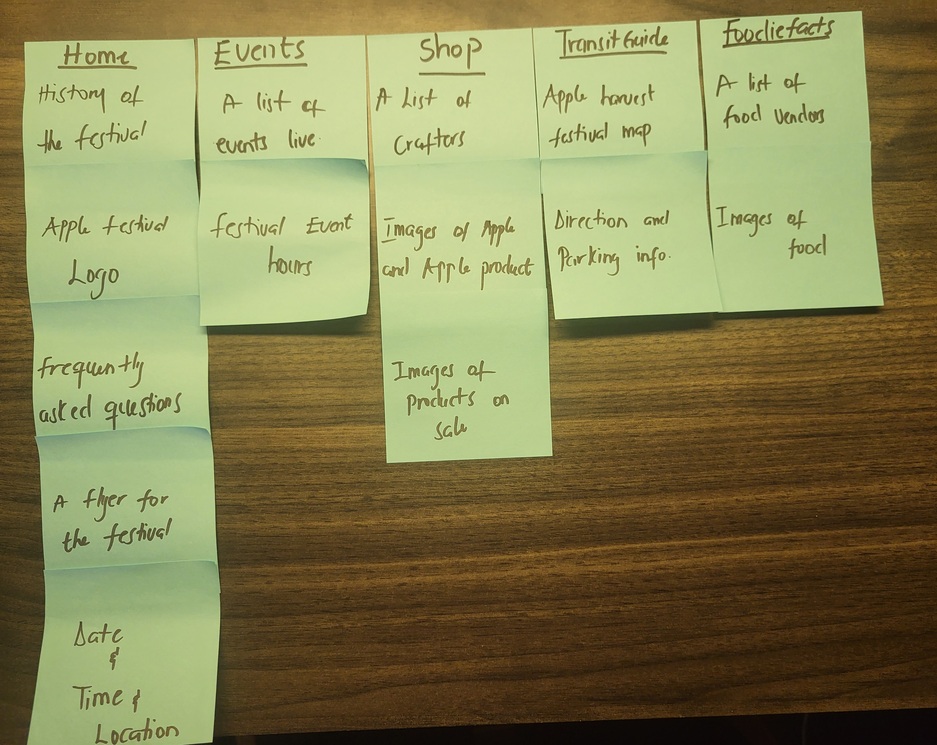 Home
History of
the festival
Apple festival
Logo
frequently
asked questions
A flyer for
the festival
Date
&
Time &
Location
Events
A list of
events live.
festival Event
hours
Shop
A List of
Crafters
Images of Apple
and Apple product
Images of
Products on
sale
Transit Guide
Apple harvest
festival map
Direction and
Parking info.
Foodiefacts
A list of
food vendors
Images of
food